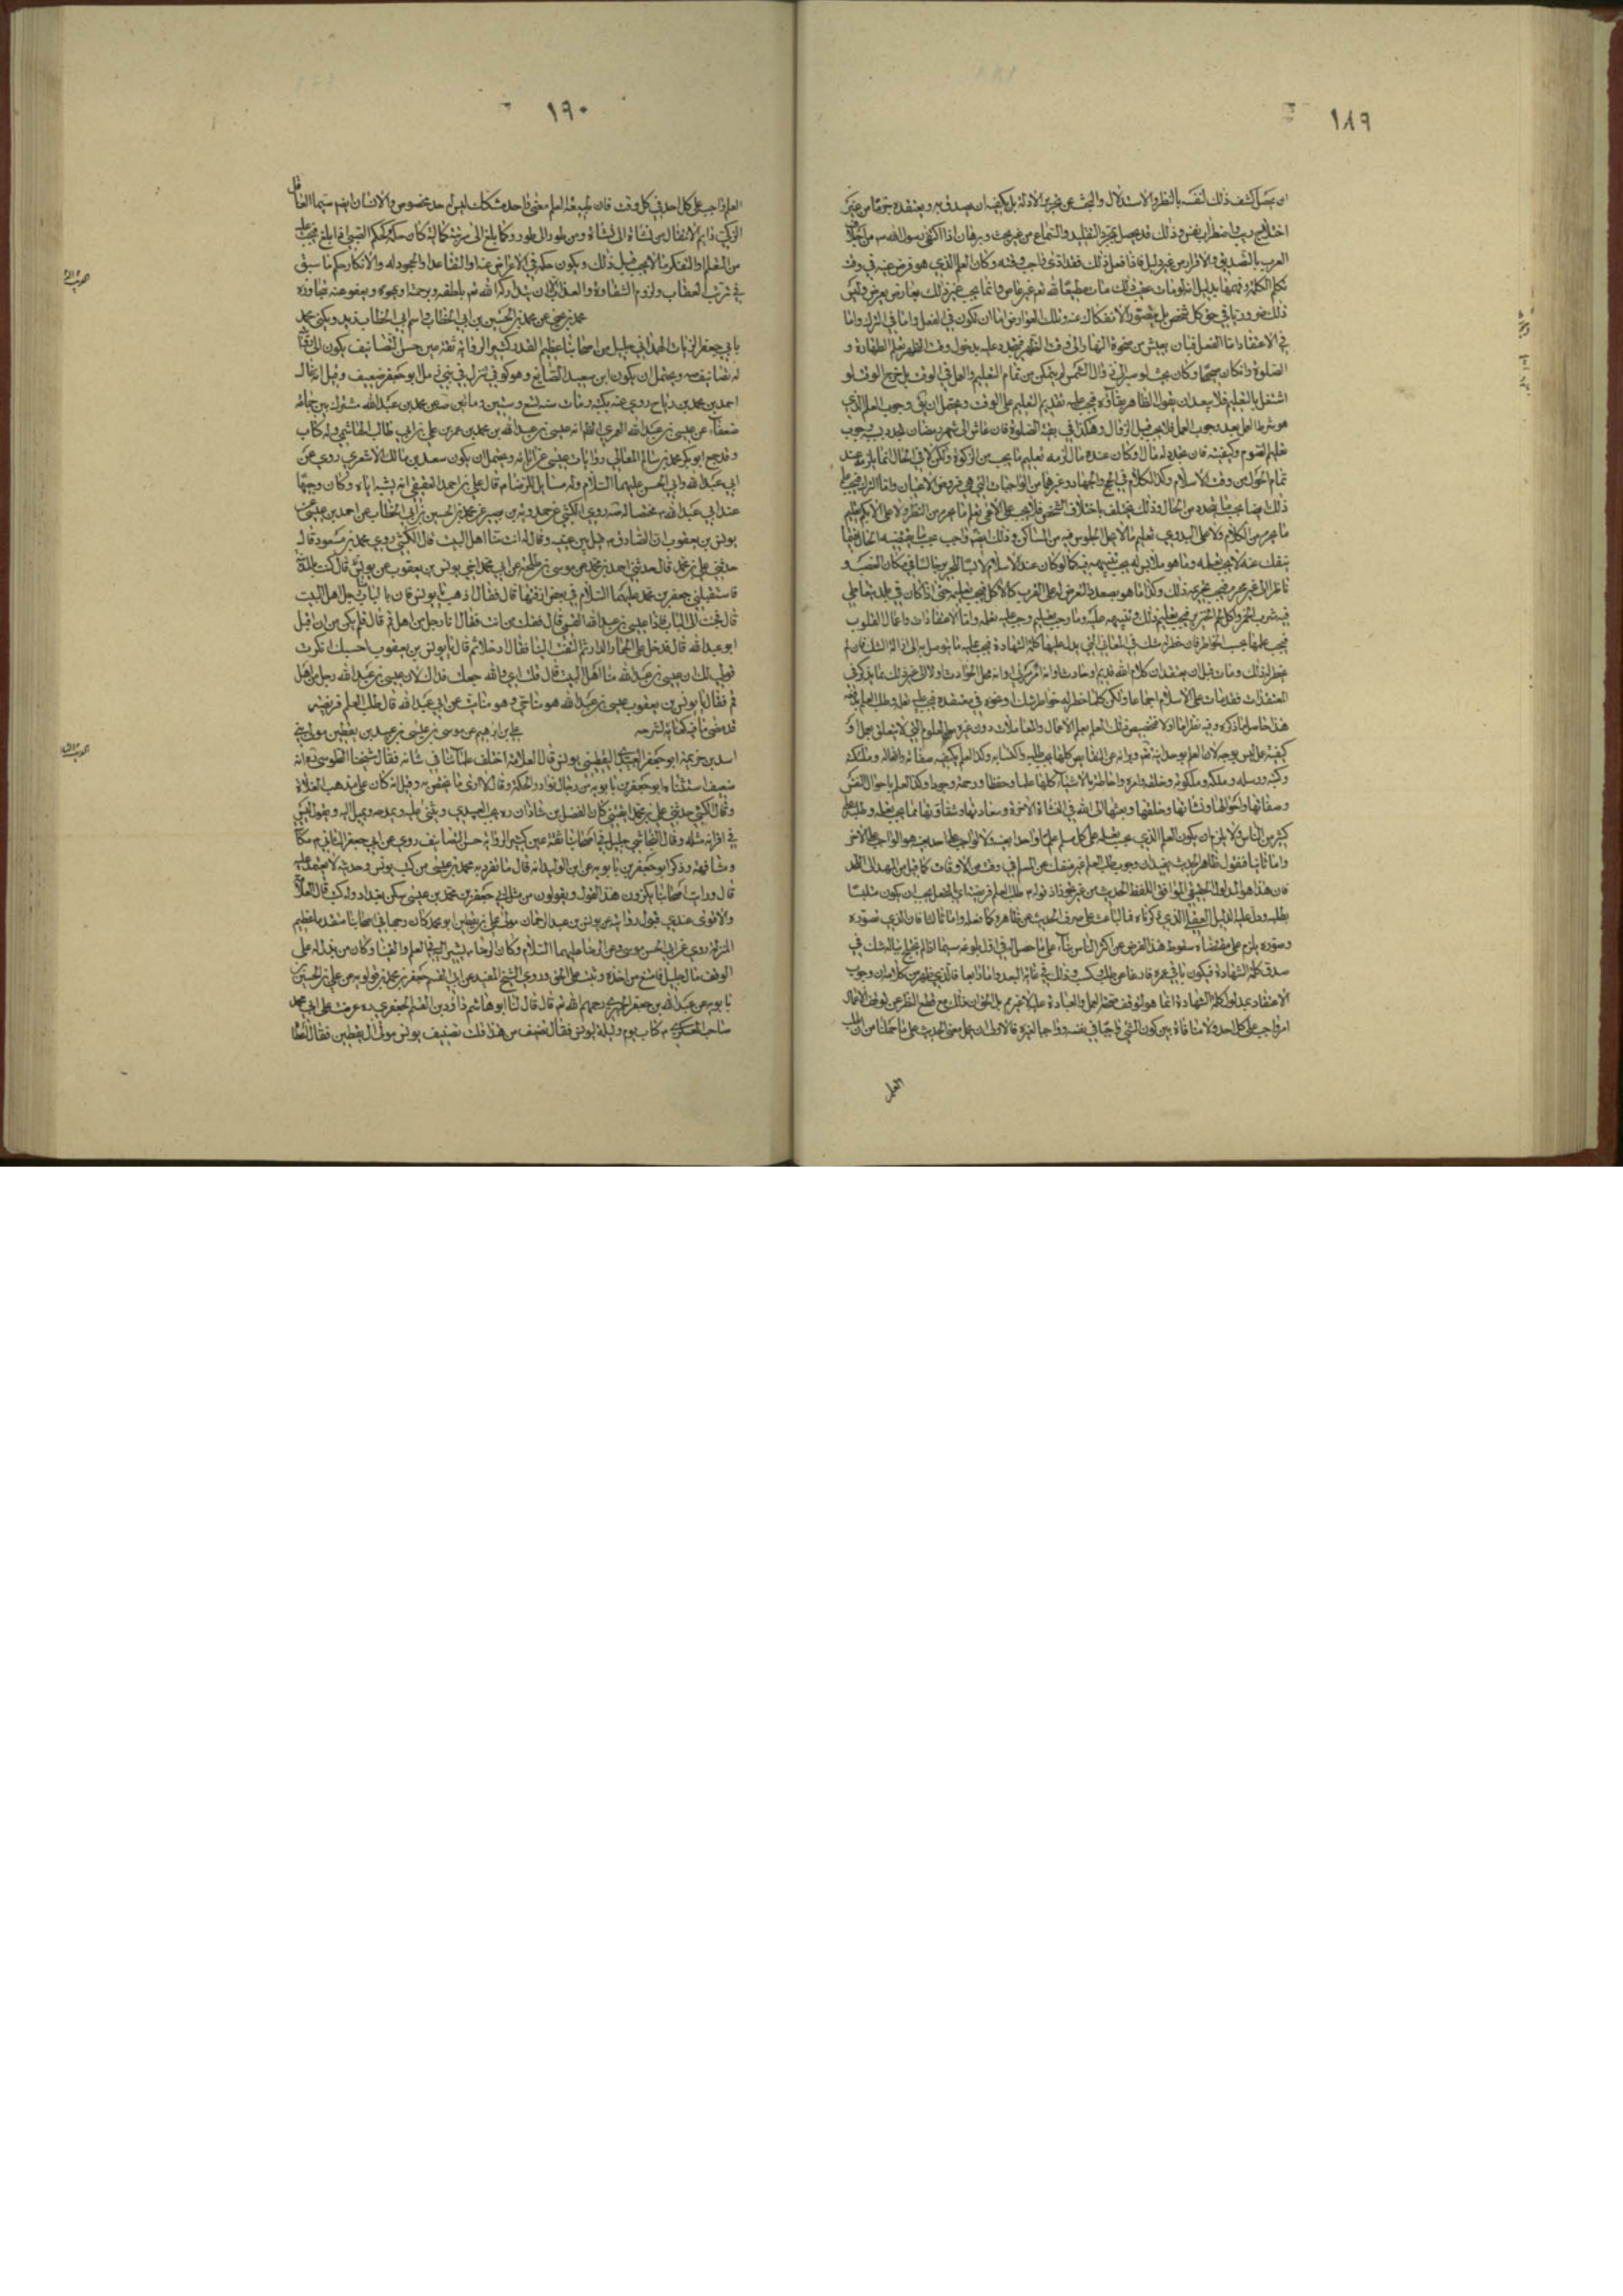 ١٨٩
ان يحصل كشف ذلك لنفسه بالنظر والاستدلال والبحث عن تحرير الادلة بل يكفيه ان يصدق به ويعتقده جزما من غير
اختلاج ريب واضطراب نفس وذلك قد يحصل بمجرد التقليد والسماع من غير بحث وبرهان اذ اكتفى رسول الله ص من اجلاف
العرب بالتصديق والاقرار من غير دليل فاذا فعل ذلك فقد ادى واجب وقته وكان العلم الذي هو فرض عينه في وقت
تكلم الكلمة وفهمها بدليل انه لو مات عقيب ذلك مات مطيعا لله تعم غير عاص وانما يجب غير ذلك بعارض يعرض وليس
ذلك ضروريا في حق كل شخص بل يتصور الانفكاك عنه وتلك العوارض اما ان تكون في الفعل واما في الترك واما
في الاعتقاد اما الفعل فبان يعيش من ضحوة النهار الى وقت الظهر فيتجدد عليه بدخول وقت الظهر تعلم الطهارة و
الصلوة وان كان صحيحا وكان بحيث لو صبر الى زوال الشمس لم يتمكن من تمام التعليم والعمل في الوقت بل يخرج الوقت لو
اشتغل بالتعليم فلا يبعد ان يقول الظاهر بقاؤه فيجب عليه تقديم التعليم على الوقت ويحتمل ان يق وجوب العلم الذي
هو شرط العمل بعد وجوب العمل فلا يجب قبل الزوال وهكذا في بقية الصلوة فان عاش الى شهر رمضان تجدد بسببه وجوب
تعليم الصوم وكيفيته فان تجدد له مال او كان عنده مال لزمه تعليم ما يجب من الزكوة ولكن لا في الحال انما يلزمه عند
تمام الحول من وقت الاسلام وكذا الكلام في الحج والجهاد وغيرها من الواجبات التي هي فروض الاعيان واما الترك فيجب عليه
ذلك ايضا بحسب ما يتجدد من الحال وذلك يختلف باختلاف الشخص فلا يجب على الاعمى تعلم ما يحرم من النظر ولا على الابكم تعليم
ما يحرم من الكلام ولا على البدوي تعليم ما لا يحل الجلوس فيه من المساكن وذلك ايضا واجب بحسب ما يقتضيه الحال فما
ينفك عنه لا يجب تعلمه وما هو ملابس له يجب تنبيهه فيه كما لو كان عند الاسلام لابسا للحرير جالسا في مكان الغصب و
ناظرا الى غير محرم فيجب تعريفه ذلك وكذا ما هو بصدد التعرض له على القرب كالاكل فيجب تعليمه حتى اذا كان في بلد يتعاطى
فيه شرب الخمر واكل لحم الخنزير فيجب تعليمه ذلك وتنبيهه عليه وما وجب تعليم وجب عليه تعلمه واما الاعتقادات واعمال القلوب
فيجب علمها بحسب الخواطر فان خطر له شك في المعاني التي يدل عليها كلمة الشهادة فيجب عليه ما يتوسل به الى ازالة الشك فان لم
يخطر له ذلك ومات قبل ان يعتقد ان كلام الله قديم او حادث وانه مرئي او لا وانه محل الحوادث او لا الى غير ذلك مما يذكر في
المعتقدات فقد مات على الاسلام اجماعا ولكن كلما خطر له خواطر شك او ضده في معتقده فيجب عليه تعلمه وطلب العلم
هذا حاصل ما ذكره وفيه نظر اما اولا فتخصيص ذلك العلم بعلم الاعمال والمعاملات دون غيره من العلوم التي لا يتعلق بعمل و
كيفية عمل ليس بوجه لان العلم بوحدانيته تعم وبراءته عن النقايص كلها يجب طلبه واكتسابه وكذا العلم بكيفية صفاته وافعاله وملائكته
وكتبه ورسله وملكه وملكوته وخلقه وامره واحاطته بالاشياء كلها علما وحفظا ورحمة وجودا وكذا العلم باحوال النفس
وصفاتها واحوالها ونشاتها وخلقها وبعثها الى الله في النشاة الاخرة وسعادتها وشقاوتها مما يجب تعلمه وطلبه على
كثير من الناس ولا يلزم ان يكون العلم الذي يجب تعلمه على كل مسلم علما واحدا بعينه ولا الواجب على احد بعينه هو الواجب على الاخر
واما ثانيا فنقول ظاهر الحديث يفيد ان وجوب طلب العلم غير منفك عن المسلم في وقت من الاوقات كما قيل من المهد الى اللحد
فان هذا هو المدلول الحقيقي الموافق للفظ الحديث من غير تجوز اذ قوله ص طلب العلم فريضة اي بالفعل يجب ان يكون متلبسا
بطلبه ودل عليه الدليل العقلي الذي ذكرناه فما الباعث على صرف الحديث عن ظاهره كما فعله واما ثالثا فان الذي تصوره
وصوره يلزم على مقتضاه سقوط هذا الفرض عن اكثر الناس بناء على ما حصل له في اول بلوغه سيما اذا لم يختلج بباله شك في
صدق كلمة الشهادة فيكون باقي عمره فارغا عن طلب وكسب وذلك في غاية البعد واما رابعا فالذي يظهر من كلامه ان وجوب
الاعتقاد بمدلول كلمة الشهادة انما هو لتوقف صحة العمل والعبادة عليه لا غير بل الحق ان ذلك مع قطع النظر عن توقف الاعمال
امر واجب على كل احد ولا منافاة بين كون الشيء واجبا في نفسه وواجبا لغيره فالاولى ان يحمل معنى الحديث على ما حملنا من ان طلب
العلم
١٩٠
العلم واجب على كل احد في كل وقت فان طبيعة العلم معنى واحد مشكك ليس له حد مخصوص والانسان ايضا سيما العاقل
الزكي دايم الانتقال من نشاة الى نشاة ومن طور الى طور وكما بلغ الى مرتبة كماله كان حكمه كحكم الصبي اذا بلغ فيجب عليه
من التعلم والتفكر ما لا يجب قبل ذلك ويكون حكمه في الاعراض عنها والتقاعد او الجحود له والانكار حكم ما سبق
في ترتب العقاب ولزوم الشقاوة والعذاب الا ان يتداركه الله تعم بلطفه ويرحمه او يمحوه ويعفو عنه بتجاوزه
محمد بن يحيى عن محمد بن الحسين بن ابي الخطاب واسم ابي الخطاب زيد ويكنى محمد
بابي جعفر الزيات الهمداني جليل من اصحابنا عظيم القدر كثير الرواية ثقة عين حسن التصانيف يكون الى روايته
له تصانيف صه ويحتمل ان يكون ابن سعيد الصائغ وهو كوفي نزل في بني ذهل ابو جعفر ضعيف وقيل انه غال
احمد بن محمد بن رباح روى عنه بكتبه ومات سنه تسع وستين ومائتين صه عن محمد بن عبد الله مشترك بين جماعة
ضعفاء عن عيسى بن عبد الله العمري الظ انه عيسى بن عبد الله بن محمد بن عمر بن علي بن ابي طالب الهاشمي وله كتاب
وقد جمع ابو بكر محمد بن سالم الجعابي روايات عيسى عن ابائه ويحتمل ان يكون سعد بن مالك الاشعري روى عن
ابي عبد الله وابي الحسن عليهما السلام وله مسايل للرضا ع قال علي بن احمد العقيقي انه يشبه اباه وكان وجيها
عند ابي عبد الله ع مختصا له صه روى الكشي عن حمدويه بن نصير عن محمد بن الحسين بن ابي الخطاب عن احمد بن عيسى عن
يونس بن يعقوب ان الصادق ع قبل بين عينيه وقال له انت منا اهل البيت قال الكشي روى محمد بن مسعود قال
حدثني علي بن محمد قال حدثني احمد بن محمد عن موسى بن طلحة عن ابي محمد اخي يونس بن يعقوب عن يونس قال كنت بالمدينة
فاستقبلني جعفر بن محمد عليهما السلام في بعض ازقتها قال فقال اذهب يا يونس فان بالباب رجل اهل البيت
قال فجئت الى الباب فاذا عيسى بن عبد الله القمي قال فقلت من انت فقال انا رجل من اهل قم قال فلم يكن من ان اقبل
ابو عبد الله قال فدخل على الحمار الدار ثم التفت الينا فقال ادخلا ثم قال يا يونس بن يعقوب احسبك انكرت
قولي لك ان عيسى بن عبد الله منا اهل البيت قال قلت اي والله جعلت فداك لان عيسى بن عبد الله رجل من اهل
قم فقال يا يونس بن يعقوب عيسى بن عبد الله هو منا حي وهو منا ميت عن ابي عبد الله قال طلب العلم فريضة
قد مضى ما فيه كفاية لشرحه
علي بن ابراهيم عن موسى بن عيسى بن عبيد بن يقطين مولى بني
اسد بن خزيمة ابو جعفر العبيدي اليقطيني يونس قال العلامة اختلف علماؤنا في شانه فقال شيخنا الطوسي ره انه
ضعيف استثناه ابو جعفر بن بابويه من رجال نوادر الحكمة وقال لا اروي ما يختص به وقيل انه كان على مذهب الغلاة
وقال الكشي حدثني علي بن محمد القتيبي كان الفضل بن شاذان ره يحب العبيدي ويثني عليه ويمدحه ويميل اليه ويقول ليس
في اقرانه مثله وقال النجاشي جليل في اصحابنا ثقة عين كثير الرواية حسن التصانيف روى عن ابي جعفر الثاني ع مكاتبة
ومشافهة وذكر ابو جعفر بن بابويه عن ابن الوليد انه قال ما تفرد به محمد بن عيسى من كتب يونس وحديثه لا يعتمد عليه
قال ورايت اصحابنا ينكرون هذا القول ويقولون من مثل ابي جعفر بن محمد بن عيسى سكن بغداد وله كتب قال العلامة
والاقوى عندي قبول روايته عن يونس بن عبد الرحمان مولى علي بن يقطين ابو محمد كان وجها في اصحابنا متقدما عظيم
المنزلة روى عن ابي الحسن موسى وعن الرضا عليهما السلام وكان الرضا ع يشير اليه في العلم والفتيا وكان ممن بذل له على
الوقف مال جليل فامتنع من اخذه وثبت على الحق وروى الشيخ المفيد عن ابي القسم جعفر بن محمد بن قولويه عن علي بن الحسين بن
بابويه عن عبد الله بن جعفر الحميري رحمهم الله تم قال قال لنا ابو هاشم داود بن القسم الجعفري ره عرضت على ابي محمد
صاحب العسكري ع كتاب يوم وليلة ليونس فقال تصنيف من هذا قلت تصنيف يونس مولى ال يقطين فقال اعطاه